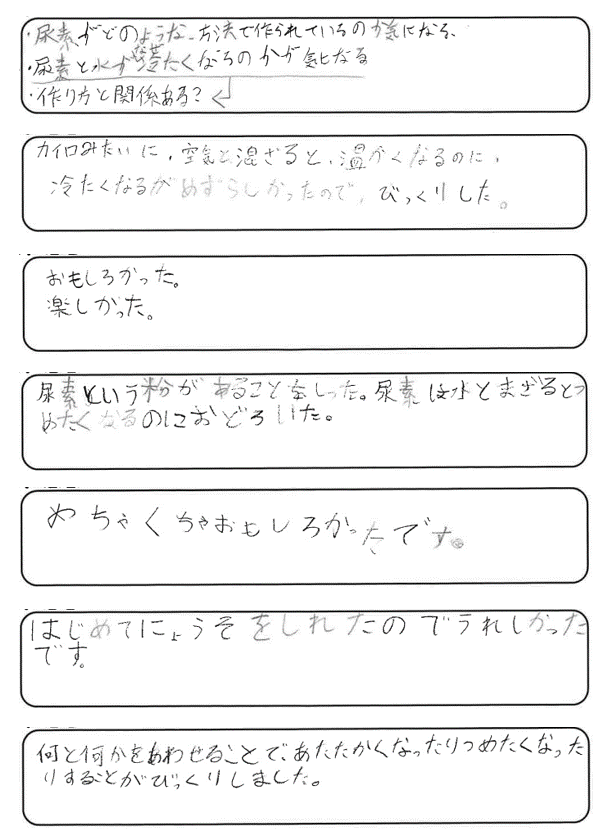 ・尿素がどのような方法で作られているのか気になる、
・尿素と水がなぜ冷たくなるのかが気になる
・作り方と関係ある?
カイロみたいに、空気と混ざると、温かくなるのに、
冷たくなるがめずらしかったので、びっくりした。
おもしろかった。
楽しかった。
尿素という粉があることをしった。尿素は水とまざるとつ
めたくなるのにおどろいた。
めちゃくちゃおもしろかったです。
はじめてにょうそをしれたのでうれしかった
です。
何と何かをあわせることで、あたたかくなったりつめたくなった
りすることがびっくりしました。